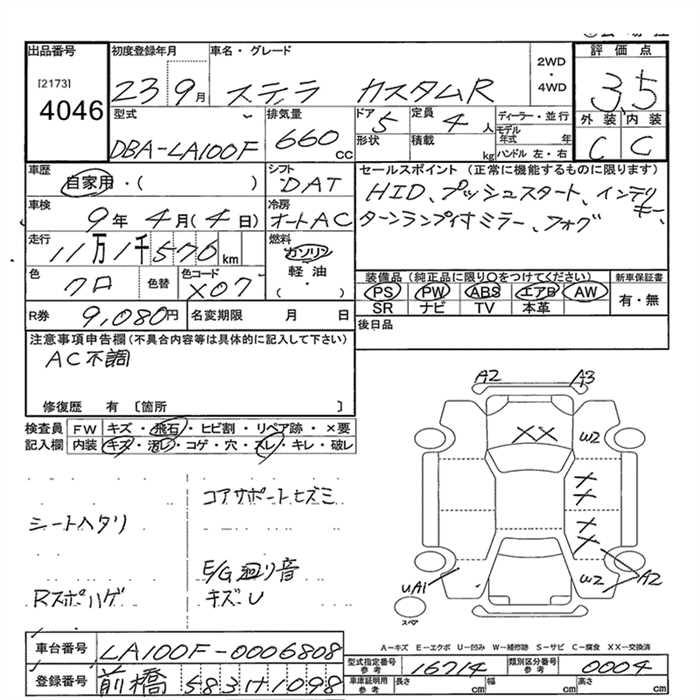 出品番号
[2173]
4046
初度登録年月
23 9月
車名・グレード
ステラ カスタムR
2WD
・
4WD
評価点
3.5
外装 内装
C C
型式
DBA-LA100F
排気量
660cc
ドア
5
形状
定員
4人
積載
kg
ディーラー・並行
モデル年式 年
ハンドル 左・右
車歴
自家用・( )
シフト
DAT
セールスポイント (正常に機能するものに限ります)
HID、プッシュスタート、インテリキー、
ターンランプ付ミラー、フォグ
車検
9年 4月(4日)
冷房
オートAC
走行
11万1千576km
燃料
ガソリン
軽油
・( )
色
クロ
色替
色コード
X07
装備品 (純正品に限り○をつけてください)
PS PW ABS エアB AW
SR ナビ TV 本革
新車保証書
有・無
R券
9,080円
名変期限 月 日
後日品
注意事項申告欄 (不具合内容等は具体的に記入して下さい)
AC不調
修復歴 有 〔箇所 〕
検査員 FW キズ・飛石・ヒビ割・リペア跡・×要
記入欄 内装 キズ・汚レ・コゲ・穴・スレ・キレ・破レ
コアサポートヒズミ
シートヘタリ
E/G廻り音
Rスポハゲ
キズU
A2 A3
XX
W2
X
X
X
X
UA1
W2 A2
スペア
A-キズ E-エクボ U-凹み W-補修跡 S-サビ C-腐食 XX-交換済
車台番号
LA100F-0006808
登録番号
前橋 583 1098
型式指定番号
参考
16714
類別区分番号
参考
0004
車庫証明用
参考
長さ cm
幅 cm
高さ cm